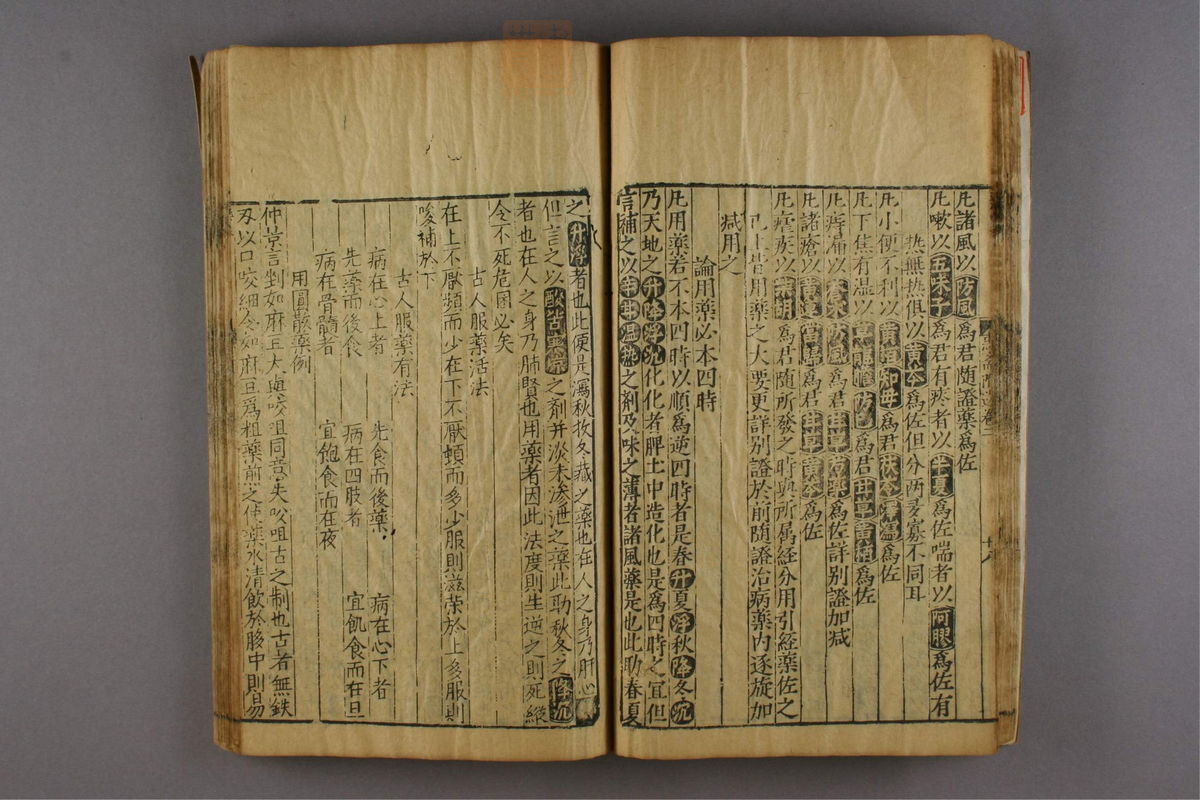 凡諸風以防風爲君随證藥爲佐
凡嗽以五味子爲君有痰者以半夏爲佐喘者以阿膠爲佐有
热無热俱以黄芩爲佐但分两多寡不同耳
凡小便不利以黄栢知母爲君茯苓澤瀉爲佐
凡下焦有湿以草龍膽防巳爲君甘草黄栢爲佐
凡痔漏以蒼朮防風爲君甘草芍藥爲佐詳别證加减
凡諸瘡以黄連當歸爲君甘草黄芩爲佐
凡瘧疾以柴胡爲君随所發之時與所属經分用引經藥佐之
已上皆用藥之大要更詳别證於前随證治病藥内逐旋加
减用之
論用藥必本四時
凡用藥若不本四時以順爲逆四時者是春升夏浮秋降冬沉
乃天地之升降浮沉化化者脾土中造化也是爲四時之宜但
言補之以辛甘温热之剤及味之薄者諸風藥是也此助春夏
之升浮者也此便是瀉秋收冬藏之藥也在人之身乃肝心
但言之以酸苦寒凉之剤并淡味滲泄之藥此助秋冬之降沉
者也在人之身乃肺腎也用藥者因此法度則生逆之則死縱
令不死危困必矣
古人服藥活法
在上不厭頻而少在下不厭頓而多少服則滋荣於上多服則
峻補於下
古人服藥有法
病在心上者 先食而後藥 病在心下者
先藥而後食 病在四肢者 宜飢食而在旦
病在骨髓者 宜飽食而在夜
用圓散藥例
仲景言剉如麻豆大與㕮咀同意夫㕮咀古之制也古者無鉄
刄以口咬細令如麻豆爲粗藥煎之使藥水清飲於膓中則易